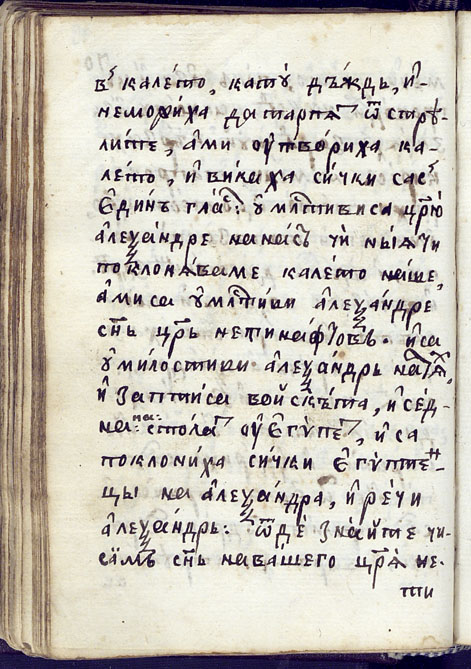 въ калето, катѹ дъждь, и҆
немориха датарпѧⷮ ѿстрѣ
лите, а҆ми ѹ҆твориха ка
лето, и҆ викаха сички сасъ
є҆динъ гла́ⷭ: ѹ҆млⷭ҇тивиса цр҃ю
алеѯандре нанасъ чи ныѧ чи
поклонѧваме калето наше,
амиса ѹ҆млⷭ҇тиви алеѯандре
сн҃ъ цр҃ь нетинафѡвъ. и҆са
ѹ҆милостиви алеѯандръ наⷮѧⷯ,
и҆ заптиса войскѣта, и҆ сед-
на: на: столаⷮ ѹ є҆гѵпеⷮ, и҆ са
поклониха сички є҆гѵптеⷩ-
цы на алеѯандра, и҆ речи
алеѯандръ: ѿде знайте чи
самъ сн҃ъ навашего цр҃ѧ не-
ти